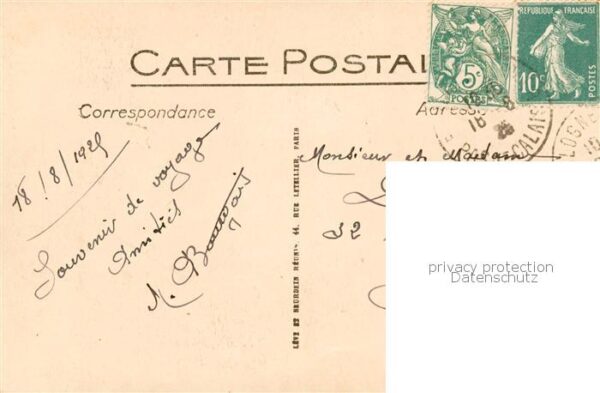 CARTE POSTAL
5c
POSTES
REPUBLIQUE FRANÇAISE
10c
POSTES
CALAIS
LOGNE
Correspondance
Adresse
18/8/1925
Souvenir de voyage
Amitiés
Monsieur et Madam
32
LÉVY ET NEURDEIN RÉUNIS 44, RUE LETELLIER, PARIS
privacy protection
Datenschutz